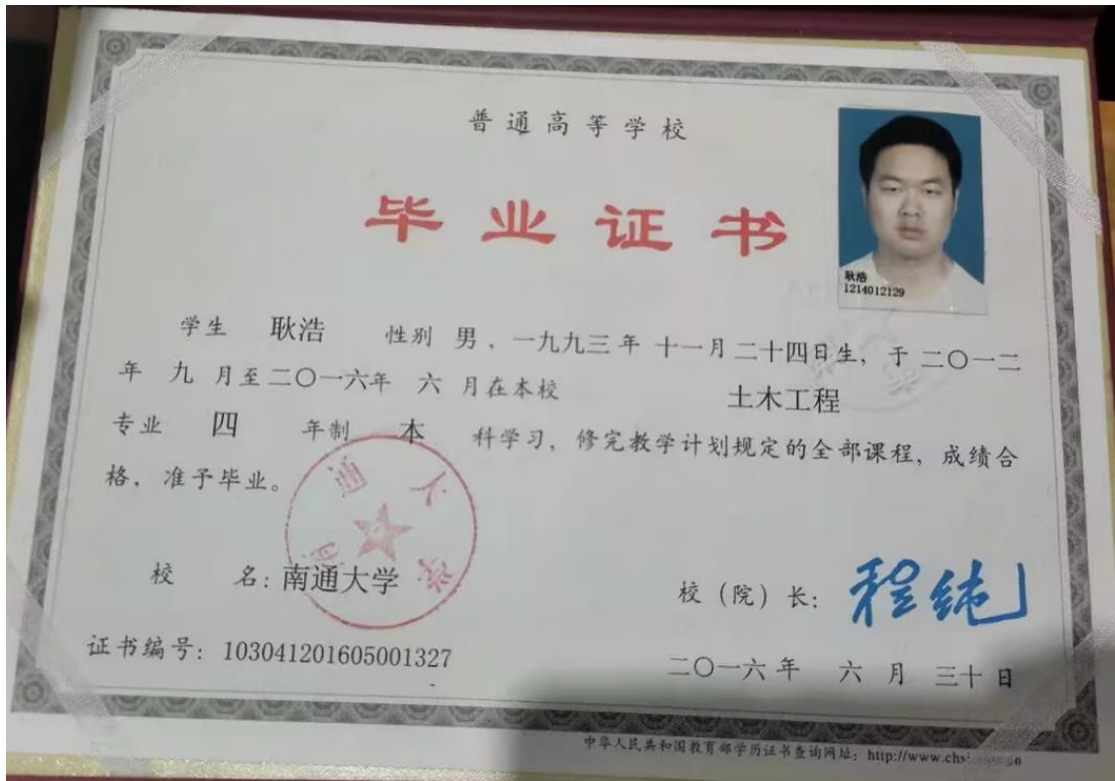 普通高等学校
毕业证书
耿浩
1214012129
学生 耿浩 性别 男，一九九三年 十一月二十四日生，于二〇一二
年 九 月至二〇一六年 六 月在本校 土木工程
专业 四 年制 本 科学习，修完教学计划规定的全部课程，成绩合
格，准予毕业。
南通大学
校 名：南通大学
校（院）长：程纯
证书编号：103041201605001327
二〇一六年 六 月 三十日
中华人民共和国教育部学历证书查询网址：http://www.chs